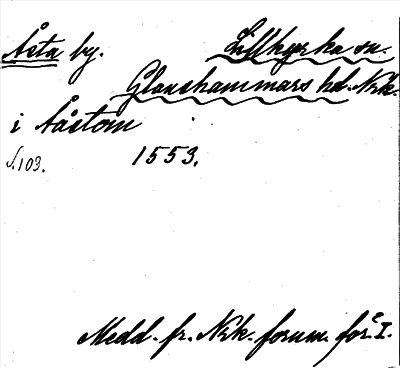 Åsta by. Lillkyrka sn.
Glanshammars hd. Nrk.
i Ååstom
S. 103. 1553.
Medd. fr. Nrk. fornm. för. I.